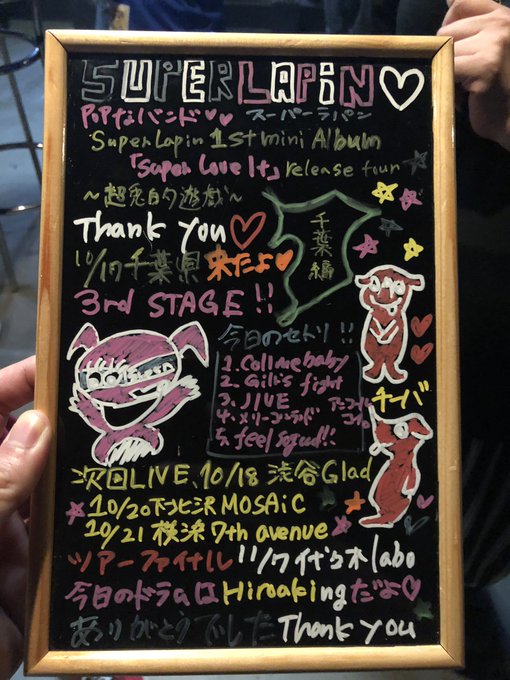 SUPER LAPiN♡
POPなバンド♥♥ スーパーラパン
Super Lapin 1st mini Album
「Super Love It」 release tour
～超兎的遊戯～
Thank you♡
千葉編
10/17 千葉県 来たよ♥
3rd STAGE !!
今日のセトリ !!
1. Call me baby
2. Girl's fight
3. JIVE
4. メリーゴーランド
5. feel so good!!
チーバ
次回LIVE、10/18 渋谷Glad
10/20 下北沢 MOSAiC
10/21 横浜 7th avenue
ツアーファイナル 11/7 代々木labo
今日のドラムは Hiroakingだよ♡
ありがとうでした Thank you